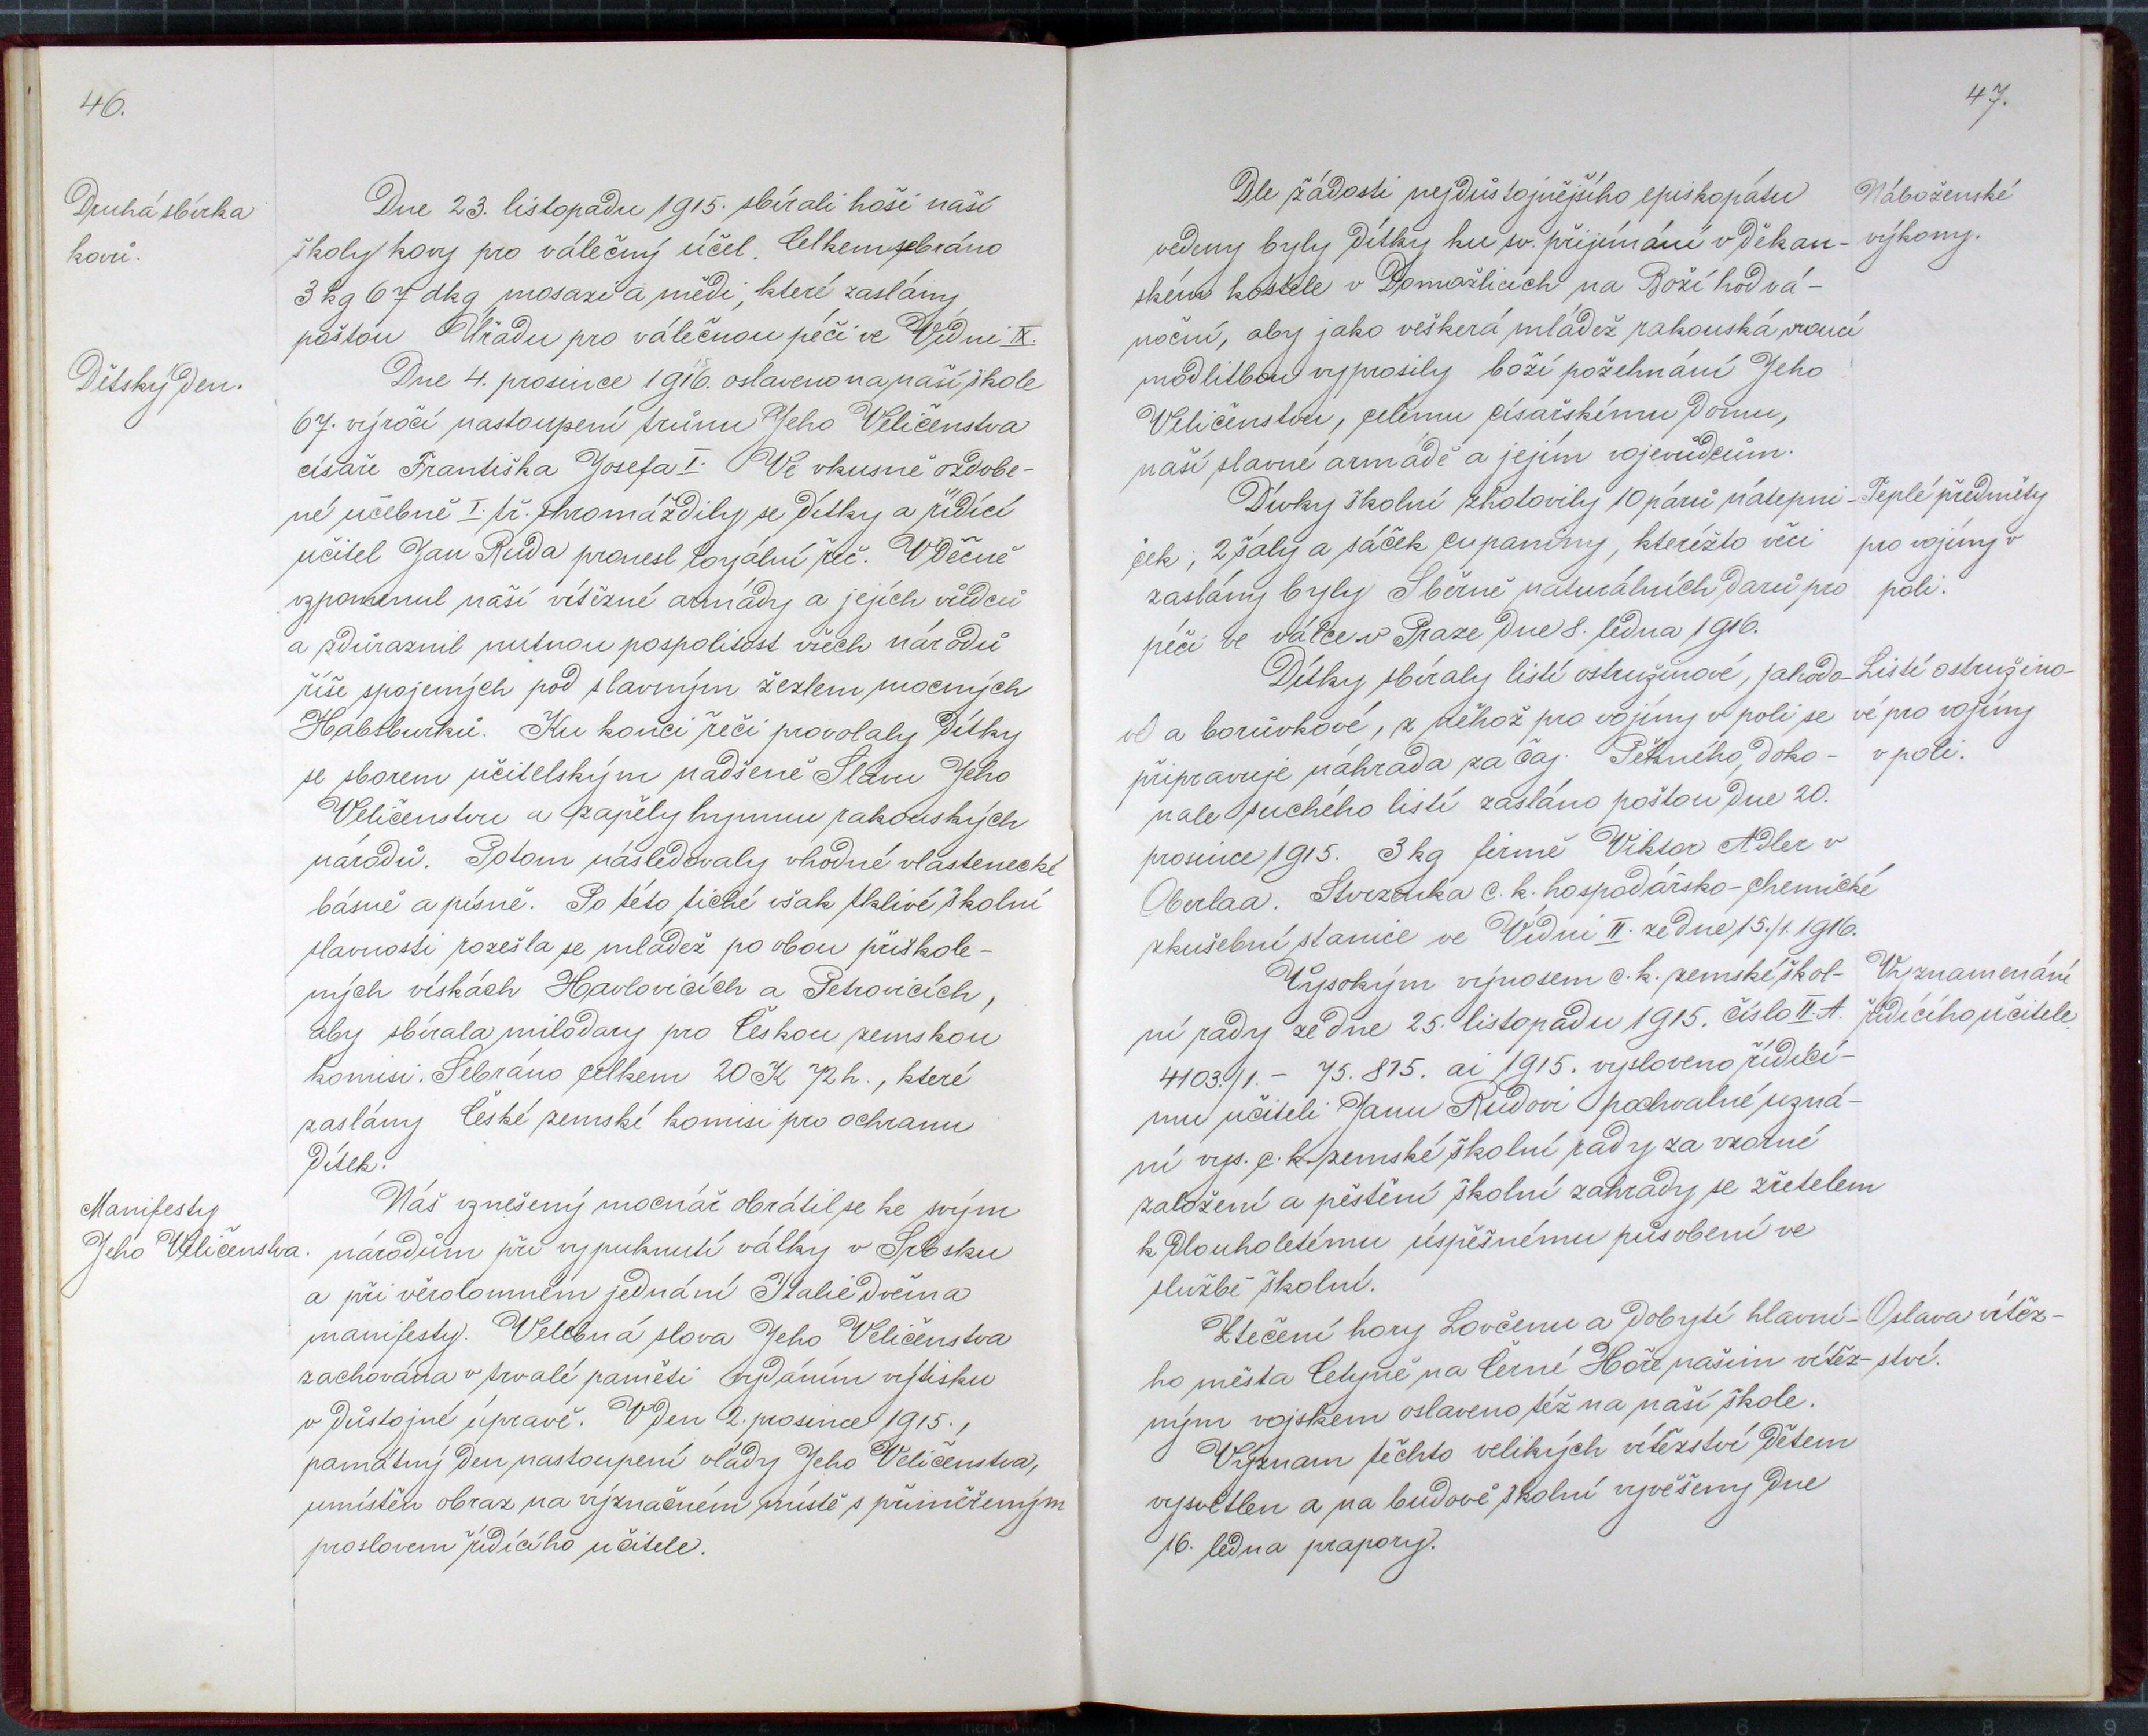 46.
Druhá sbírka
kovů.
Dne 23. listopadu 1915. sbírali hoši naší
školy kovy pro válečný účel. Celkem sebráno
3 kg 67 dkg mosazi a mědi, které zaslány
poštou Úřadu pro válečnou péči ve Vídni IX.
Dětský den.
Dne 4. prosince 1916. oslaveno na naší škole
67. výročí nastoupení trůnu Jeho Veličenstva
císaře Františka Josefa I. Ve vkusně ozdobe-
né učebně I. tř. shromáždily se dítky a řídící
učitel Jan Ruda pronesl loyální řeč. Vděčně
vzpomenul naší vítězné armády a jejích vůdců
a zdůraznil nutnou pospolitost všech národů
říše spojených pod slavným žezlem mocných
Habsburků. Ku konci řeči provolaly dítky
se sborem učitelským nadšeně Slávu Jeho
Veličenstvu a zapěly hymnu rakouských
národů. Potom následovaly vhodné vlastenecké
básně a písně. Po této tiché však tklivé školní
slavnosti rozešla se mládež po obou přiškole-
ných vískách Havlovicích a Petrovicích,
aby sbírala milodary pro Českou zemskou
komisi. Sebráno celkem 20 K 72 h., které
zaslány České zemské komisi pro ochranu
dítek.
Manifesty
Jeho Veličenstva.
Náš vznešený mocnář obrátil se ke svým
národům při vypuknutí války v Srbsku
a při věrolomném jednání Italie dvěma
manifesty. Velebná slova Jeho Veličenstva
zachována v trvalé paměti vydáním výtisku
v důstojné úpravě. V den 2. prosince 1915.,
památný den nastoupení vlády Jeho Veličenstva,
umístěn obraz na význačném místě s přiměřeným
proslovem řídícího učitele.
47.
Dle žádosti nejdůstojnějšího episkopátu
vedeny byly dítky ku sv. přijímání v děkan-
ském kostele v Domažlicích na Boží hod vá-
noční, aby jako veškerá mládež rakouská vroucí
modlitbou vyprosily boží požehnání Jeho
Veličenstvu, celému císařskému domu,
naší slavné armádě a jejím vojevůdcům.
Náboženské
výkony.
Dívky školní zhotovily 10 párů nátepni-
ček, 2 šály a sáček cupaniny, kterížto věci
zaslány byly Sběrně naturálních darů pro
péči ve válce v Praze dne 8. ledna 1916.
Teplé předměty
pro vojíny v
poli.
Dítky sbíraly listí ostružinové, jahodo-
vé a borůvkové, z něhož pro vojíny v poli se
připravuje náhrada za čaj. Pěkného, doko-
nale suchého listí zasláno poštou dne 20.
prosince 1915. 3 kg firmě Viktor Adler v
Oberlaa. Stvrzenka c. k. hospodářsko-chemické
zkušební stanice ve Vídni II. ze dne 15./1. 1916.
Listí ostružino-
vé pro vojíny
v poli.
Vysokým výnosem c. k. zemské škol-
ní rady ze dne 25. listopadu 1915. číslo II. A.
4103./1. – 75. 815. ai 1915. vysloveno řídící-
mu učiteli Janu Rudovi pochvalné uzná-
ní vys. c. k. zemské školní rady za vzorné
založení a pěstění školní zahrady se zřetelem
k dlouholetému úspěšnému působení ve
službě školní.
Vyznamenání
řídícího učitele.
Ztečení hory Lovčenu a dobytí hlavní-
ho města Cetyně na Černé Hoře našim vítěz-
ným vojskem oslaveno též na naší škole.
Význam těchto velikých vítězství dětem
vysvětlen a na budově školní vyvěšeny dne
16. ledna prapory.
Oslava vítěz-
ství.